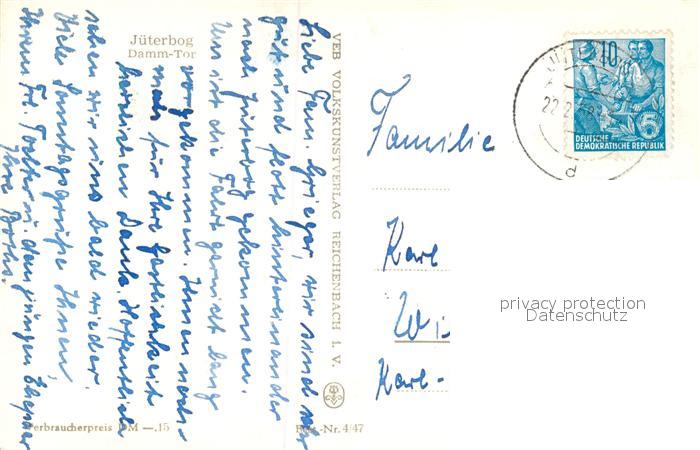 Jüterbog
Damm-Tor
Liebe Fam. Krieger, wir sind sehr
gut und flott hintereinander
nach Jüterbog gekommen.
Uns ist die Fahrt gar nicht lang
vorgekommen. Ihnen noch-
mals für Ihre Gastlichkeit
herzlichen Dank. Hoffentlich
sehen wir uns bald wieder.
Viele Sonntagsgrüße Ihnen,
Ihrem Frl. Tochter u. dem jungen Ehepaar
Ihre
Verbraucherpreis DM —.15
VEB VOLKSKUNSTVERLAG REICHENBACH I. V.
-Nr. 4/47
Familie
Karl
Wi
Karl-
10
5
DEUTSCHE
DEMOKRATISCHE REPUBLIK
22.2.
d
privacy protection
Datenschutz